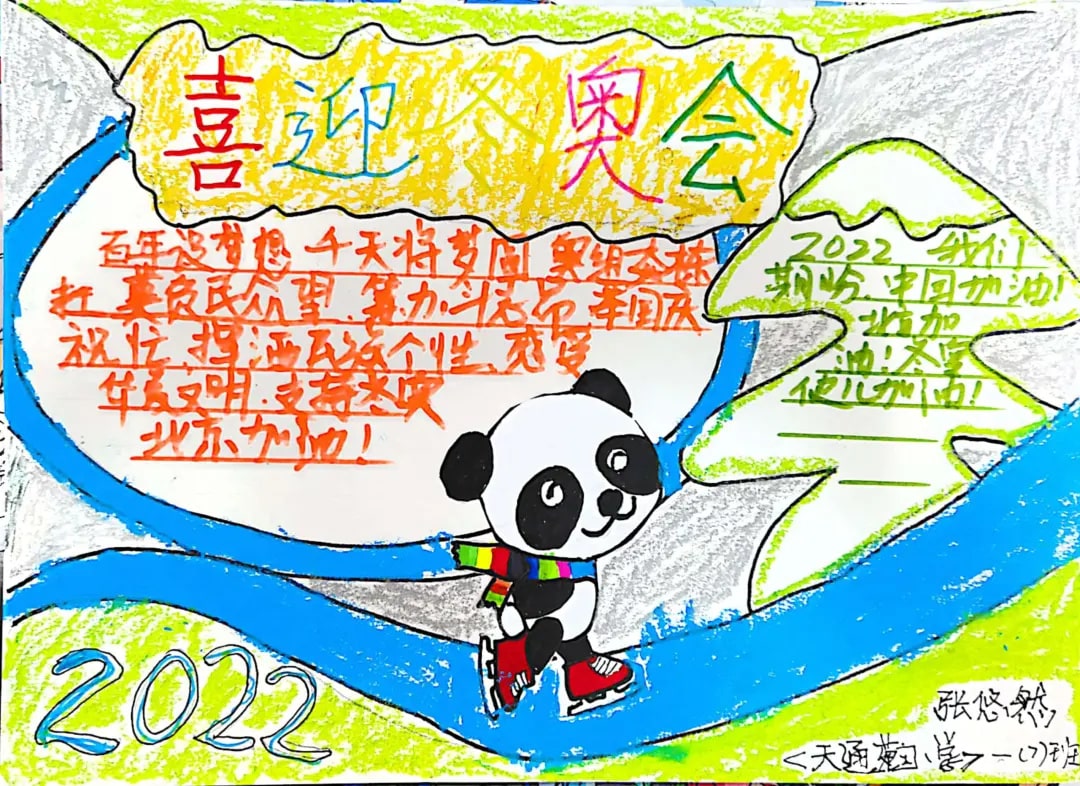 喜迎冬奥会
百年设梦想 千天将梦圆 奥组委
民众望 奋力 举国庆
祝 个性 感受
华夏文明 支持冬奥
北京加油!
2022 我们
期盼 中国加油!
北京加
油!冬奥
健儿加油!
2022
张悠然
<天通苑小学>一(7)班